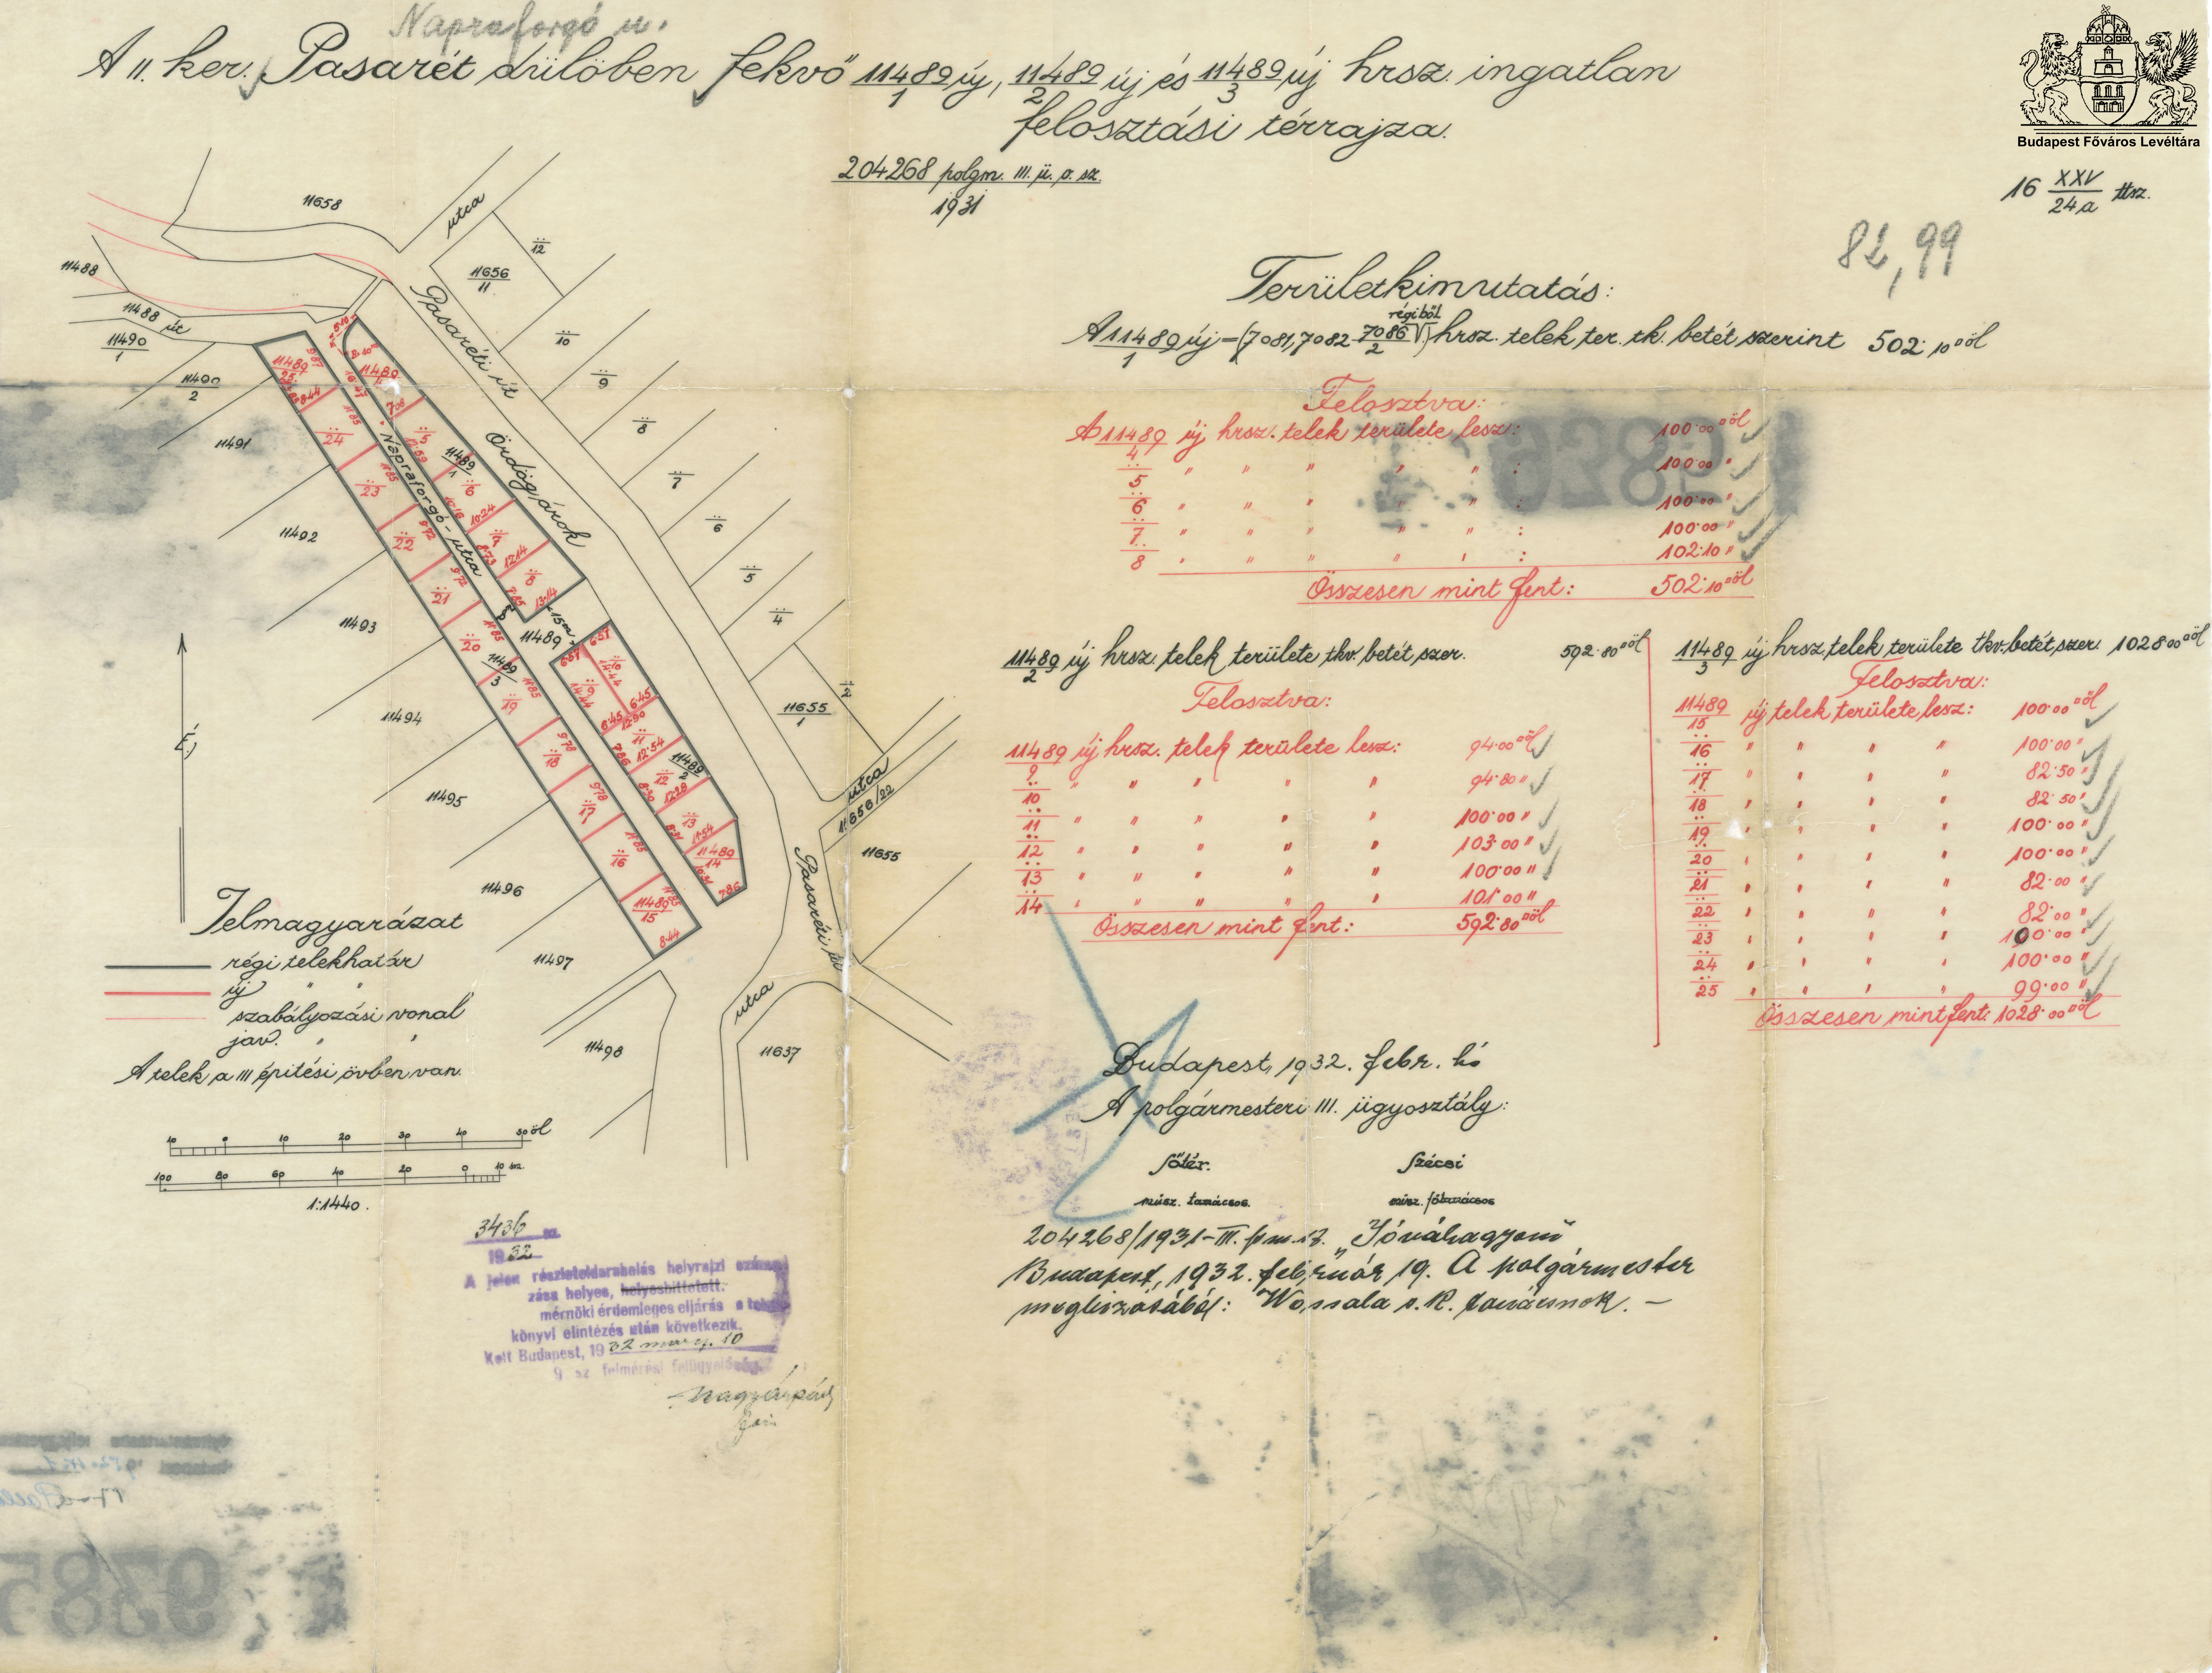 Napraforgó u.
A II. ker. Pasarét dülőben fekvő 11489/1 új, 11489/2 új és 11489/3 új hrsz. ingatlan
felosztási térrajza.
204268 polgm. III. ü. o. sz.
1931
Budapest Főváros Levéltára
16 XXV/24a ttsz.
82,99
Területkimutatás:
régiből
A 11489/1 új = (7081, 7082 7086/2) hrsz. telek ter. tk. betét szerint 502·10 □öl
Felosztva:
A 11489/4 új hrsz. telek területe lesz: 100·00 □öl
5 " " " " " : 100·00 "
6 " " " " " : 100·00 "
7 " " " " " : 100·00 "
8 " " " " " : 102·10 "
Összesen mint fent: 502·10 □öl
11489/2 új hrsz. telek területe tkv. betét szer. 592·80 □öl
Felosztva:
11489/9 új hrsz. telek területe lesz: 94·00 □öl
10 " " " " " 94·80 "
11 " " " " " 100·00 "
12 " " " " " 103·00 "
13 " " " " " 100·00 "
14 " " " " " 101·00 "
Összesen mint fent: 592·80 □öl
11489/3 új hrsz. telek területe tkv. betét szer. 1028·00 □öl
Felosztva:
11489/15 új telek területe lesz: 100·00 □öl
16 " " " " 100·00 "
17 " " " " 82·50 "
18 " " " " 82·50 "
19 " " " " 100·00 "
20 " " " " 100·00 "
21 " " " " 82·00 "
22 " " " " 82·00 "
23 " " " " 100·00 "
24 " " " " 100·00 "
25 " " " " 99·00 "
Összesen mint fent: 1028·00 □öl
Budapest, 1932. febr. hó
A polgármesteri III. ügyosztály:
Sőtér. Szécsi
műsz. tanácsos. műsz. főtanácsos
204268/1931-III. pm. sz. "Jóváhagyom"
Budapest, 1932. február 19. A polgármester
megbizásából: Wossala s. k. tanácsnok. —
11658
utca
12
11656/11
10
9
8
7
6
5
4
11655/1
utca
11656/22
11655
11637
utca
Pasaréti út
Pasaréti út
Ördögárok
Napraforgó-utca
11488
11488 út
11490/1
11490/2
11491
11492
11493
11494
11495
11496
11497
11498
11489
15m
11489/1
11489/2
11489/3
11489/25
8·44
24
11·85
23
11·85
22
9·72
21
9·72
20
11·85
19
11·85
18
9·78
17
9·78
16
11·85
11489/15
8·44
11489/4
7·08
5
6
10·16
10·24
7
8·73
12·14
8
7·85
13·14
6·57
6·57
9
14·44
10
14·44
6·45
6·45
11
7·86
12·54
12
8·20
12·28
13
11·54
11489/14
7·86
É
Jelmagyarázat
régi telekhatár
új " "
szabályozási vonal
jav. " "
A telek a III épitési övben van.
10 0 10 20 30 40 50 öl
100 80 60 40 20 0 10 m.
1:1440.
3436 sz.
1932
A jelen részleteldarabolás helyrajzi számo-
zása helyes, helyesbittetett.
mérnöki érdemleges eljárás a telek-
könyvi elintézés után következik.
Kelt Budapest, 1932 márc. 10
9 sz. felmérési felügyelőség
Nagy Árpád